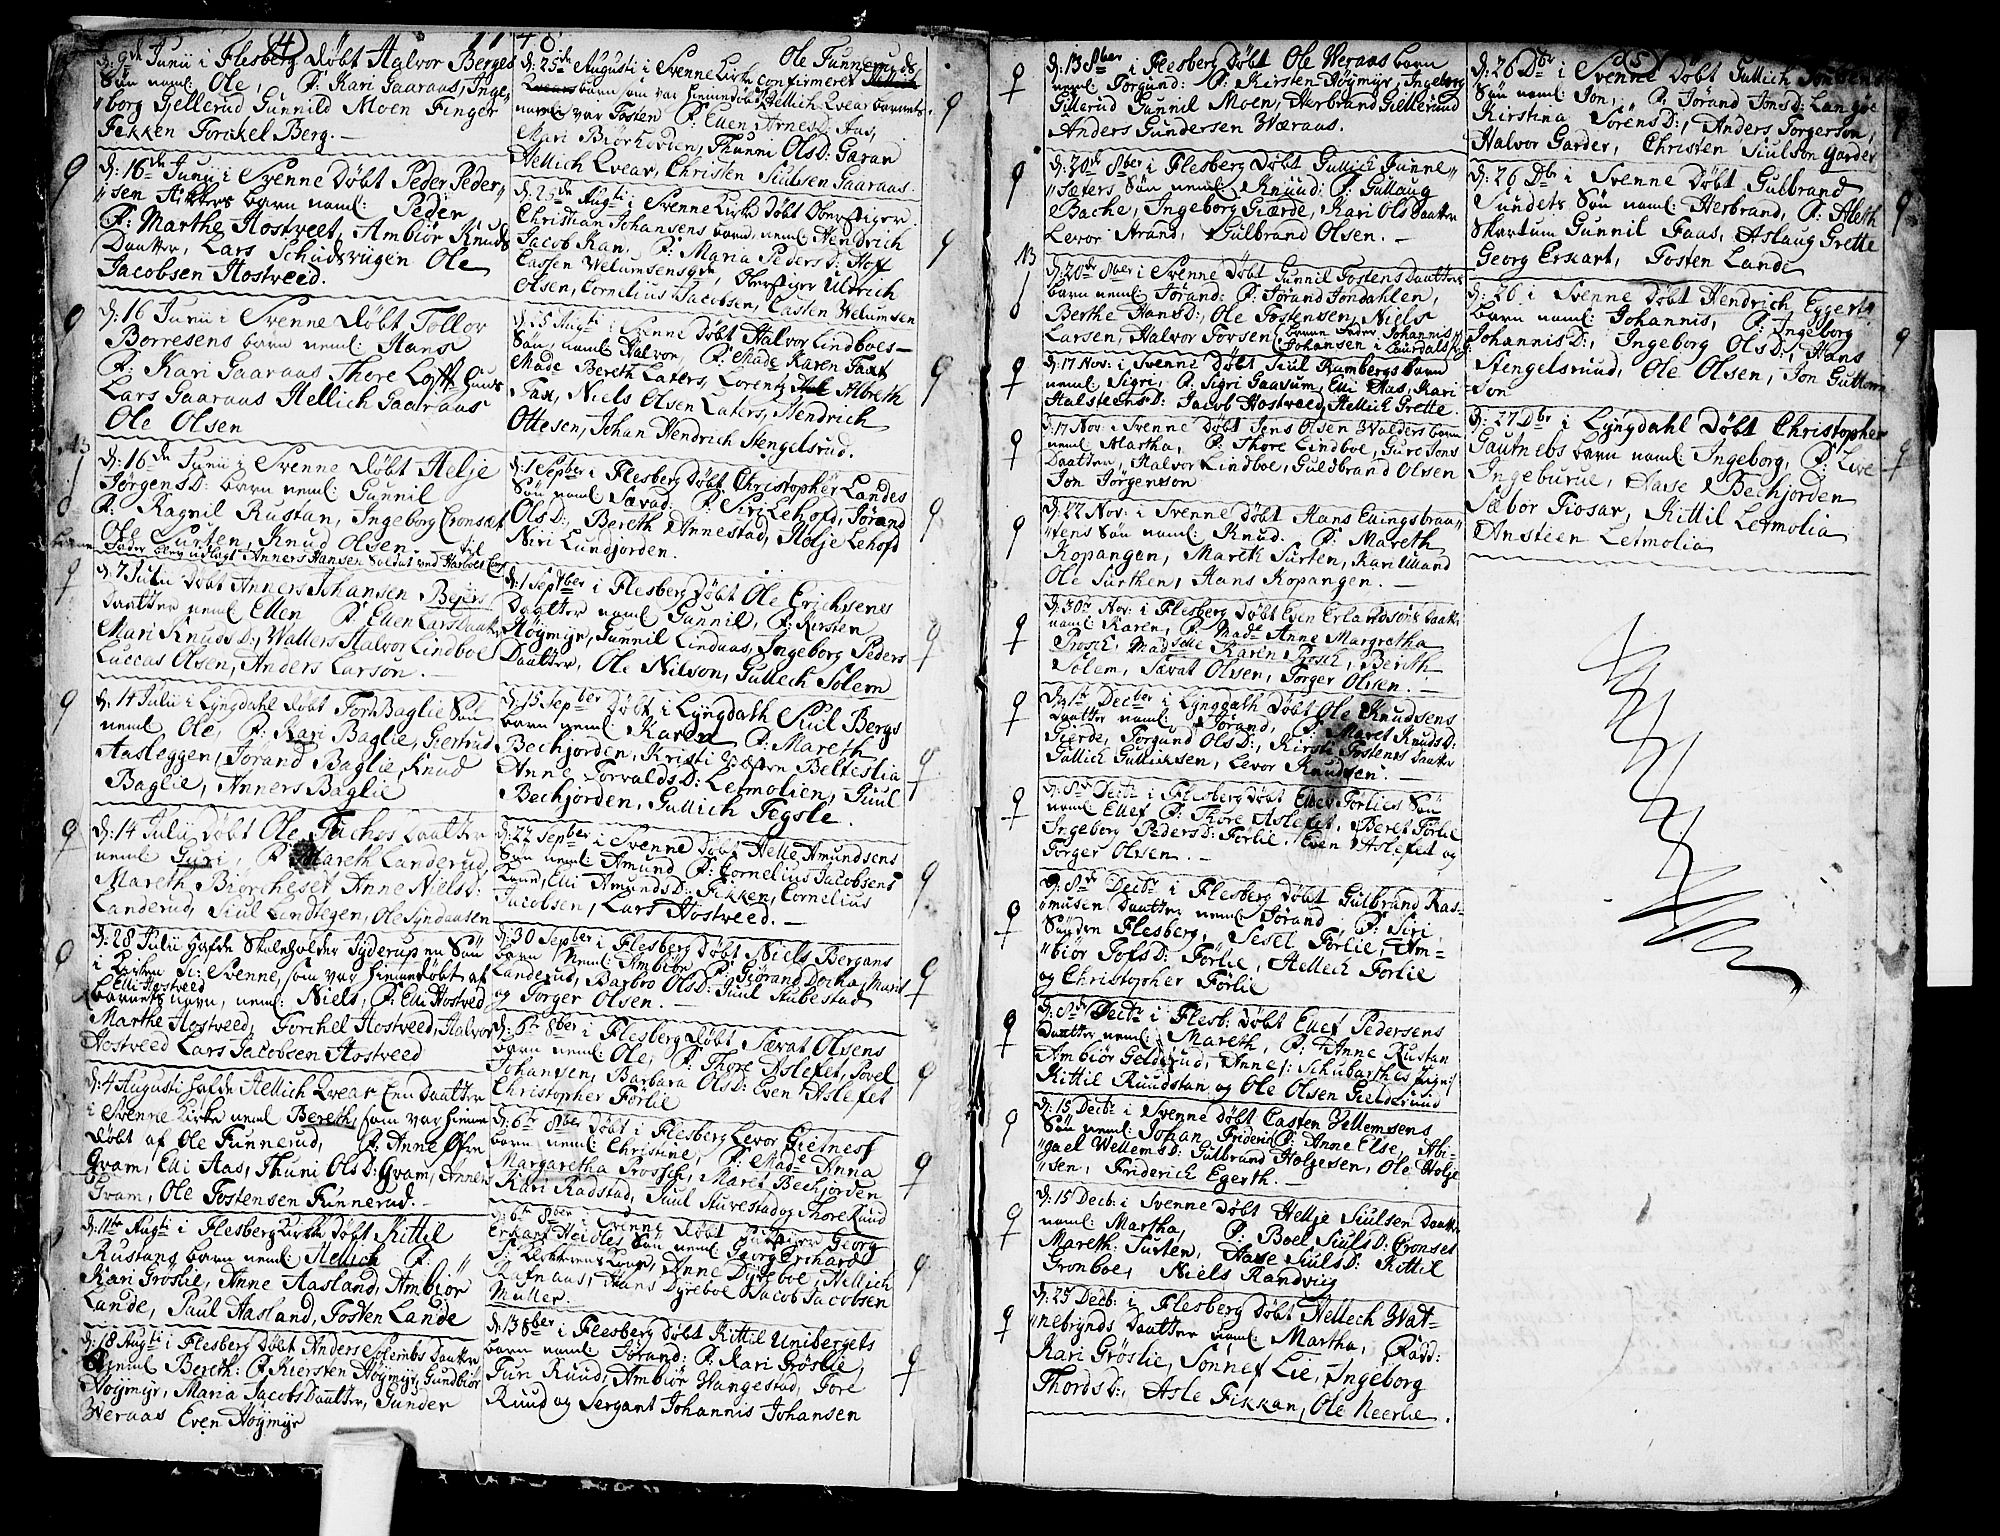 (4)
1748
d: 9de Junii i Flesberg døbt Halvor Berges
Søn neml: Ole, P: Kari Gaaraas, Inge„
„borg Gjellerud Gunnild Moen Finger
Fekken Torckel Berg.—
d: 16de Junii i Svenne Døbt Peder Peder„
„sen Fikkers barn neml: Peder
P: Marthe Hostveet, Ambiør Knuds
Daatter, Lars Schudsrugen Ole
Jacobsen Hostveed.
d: 16 Junii i Svenne Døbt Tollov
Borresens barn neml: Hans
P: Kari Gaaraas Thore
Lars Gaaraas Hellich Gaaraas
Ole Olsen
d: 16de Junii i Svenne Døbt Helje
JørgensD: barn neml: Gunnil
P: Ragnil Rustan, Ingeborg Cronsæt
Ole Surten, Knud Olsen
Fader blev udlagt Anners Hansen Soldat ved
d: 7 Julii Døbt Anners Johansen Bejers
Daatter neml Ellen P: Ellen LarsDaatter
Mari KnudsD: Walters Halvor Lindboe
Luccas Olsen, Anders Larsøn.—
d: 14 Julii i Lyngdahl Døbt Tord Baglie Søn
neml Ole, P: Kari Baglie, Giertrud
Aasleggen, Jørand Baglie, Knud
Baglie, Anners Baglie
d: 14 Julii Døbt Ole Fuchos Daatter
neml Gyri, P: Mareth Landerud,
Mareth Biørcheset Anne NielsD:
Landerud, Siul Lindtegen, Ole Syndausen
d: 28 Julii hafde Skoleholder Jyderup en Søn
i Kirken Sc: Svenne, som var hiemedøbt af
Elli Hostveed
barnets navn, neml: Niels, P: Elli Hostved
Marthe Hostveed, Torchel Hostveed, Halvor
Hostveed Lars Jacobsen Hostveed
d: 4 Augusti hafde Hellich Qvear Een Daatter
i Svenne Kirke neml Bereth, som var hieme
døbt af Ole Funnerud, P: Anne Øfre
Gvam, Elli Aas, Thuni OlsD: Gvam, Anners
Gvam, Ole Tostensen Funnerud.
d: 11te Augti i Flesberg Kirke døbt Kittil
Rustans barn neml: Hellich P:
Kari Grøslie, Anne Aasland, Ambiør
Lande, Paul Aasland, Tosten Lande
d: 18 Augti i Flesberg Døbt Anders Daatter
neml Bereth: P: Kiersten Høymyr, Gundbiør
Høymyr, Maria JacobsDaatter, Gunder
Weraas Even Høymyr
Ole Funnerud
d: 25de Augusti i Svenne Kirke confirmeret
barn som var hiemedøbt Hellich Qvear barnets
navn var Tosten P: Ellen ArnesD: Aas,
Mari Biørkhovden, Thunni OlsD: Gavan
Hellich Qvear, Christen Siulsen Gaaraas.
d: 25de Augti i Svenne Kirke Døbt Oberstiger
Christian Johansens barn, neml Hendrich
Jacob Kan, P: Maria PedersD: Hoff
Cassen Welumsensqve, Oberstiger Uldrich
Olsen, Cornelius Jacobsen, Casten Welumsen
d: 25 Augti i Svenne Døbt Halvor Lindboes
Søn, neml Halvor, P: Made Karen Fax
Made Bereth Laters, Lorentz Albreth
Fax, Niels Olsen Laters, Hendrich
Ottesen, Johan Hendrich Stengelsrud.
d: 1 Septber i Flesberg Døbt Christopher Landes
Søn neml: Sævad: P: Siri Lehofd, Jørand
OlsD:, Bereth Annestad, Helje Lehofd
Niri Lundjorden.
d: 1 Septber i Flesberg Døbt Ole Erichsens
Daatter neml: Gunnil, P: Kirsten
Høymyr, Gunnil Lindaas, Ingeborg Peders
Daatter, Ole Nilson, Gullech Solem
d: 15 Septber Døbt i Lyngdahl Siul Bergs
barn neml: Karen P: Mareth
Bechjorden, Kristi Beltestia
Anne TorvaldsD: Letmolien, Juul
Bechjorden, Gullich Fegsle.
d: 22 Septber i Svenne Døbt Helle Amundsens
Søn neml: Amund P: Cornelius Jacobsens
Kone, Elli AmundsD: Fikken, Cornelius
Jacobsen, Lars Hostveed.—
d: 30 Septber i Flesberg Døbt Niels Bergans
barn neml: Ambiør P: Giørand Docka, Marit
Landerud, Barbro OlsD: Juul Stubestad
og Torger Olsen.—
d: 6te 8ber i Flesberg Døbt Sævat Olsens
barn neml: Ole, P: Thore Aslefet, Sovel
Johansen, Barbara OlsD: Even Aslefet
Christopher Førlie
d: 6te 8ber Døbt i Flesberg Levor Gietnes
barn neml: Christine, P: Made Anna
Margaretha Prossch, Maret Bechjorden
Kari Radstad, Juul Sturestad og Thore Ruud
d: 6te 8ber i Svenne Døbt Georg
Erkart Heidles Søn neml Georg Erichard
P: Kone, Anne Dyreboe, Hellich
Rafnaas, Hans Dyreboe Jacob Jacobsen
Müller.
d: 13 8ber i Flesberg Døbt Kittil Unibergets
barn neml: Jorand: P: Kari Grøslie,
Fun Ruud, Ambiør Wangestad, Tore
Ruud og Sergant Johannis Johansen
d: 13 8ber i Flesberg Døbt Ole Weraas barn
neml: Torgund: P: Kirsten Høymyr, Ingeborg
Gillerud Gunnil Moen, Herbrand Gillerud
Anders Gundersen Weraas.
d: 20de 8ber i Flesberg Døbt Gullich Funne„
„sæters Søn neml: Knud: P: Gullaug
Bache, Ingeborg Giærde, Kari OlsDaatter
Levor Strand, Gulbrand Olsen.—
d: 20de 8ber i Svenne Døbt Gunnil TostensDaatter
barn neml: Jørand: P: Jørand Jondahlen,
Berthe HansD:, Ole Tostensen, Niels
Larsen, Halvor Torsen (barne Fader Johannis
Johansen i Laurdals
d: 17 Nov: i Svenne Døbt Siul Rambergs barn
neml: Sigri, P: Sigri Gaasum, Elli Aas, Kari
HalsteensD: Jacob Hostveed, Hellich Grette.
d: 17 Nov: i Svenne Døbt Jens Olsen Walders barn
neml: Martha, P: Thore Lindboe, Gure Jons
Daatter, Halvor Lindboe, Guldbrand Olsen
Jon Jorgenson
d: 22 Nov: i Svenne Døbt Hans Euingsbraa„
„tens Søn neml: Knud. P: Mareth
Kopangen, Mareth Surten, Kari Maand
Ole Surthen, Hans Kopangen.—
d: 30te Nov: i Flesberg Døbt Even Erlandsøns Daatt:
neml: Karen, P: Made Anne Margretha
Prosch, Madselle Karen Prosch, Bereth
Solem, Sævat Olsen, Torger Olsen.—
d: 1te Decber i Lyngdahl Døbt Ole Knudsens
Daatter neml: Jørand, P: Maret KnudsD:
Gierde, Torgund OlsD:, Kirsti Tostens Daatter
Gullich Gulliksen, Levor Knudsen.—
d: 8de Decb: i Flesberg Døbt Ellef Førlies Søn
neml Ellef P: Thore Aslefet, Beret Førlie
Ingeborg PedersD: Førlie, Even Aslefet og
Torger Olsen.—
d: 8de Decbr i Flesberg Døbt Gulbrand Ras=
„musen Daatter neml: Jorand P: Siri
Sønden Flesberg, Sesel Førlie, Am=
„biør TofsD: Førlie, Hellech Førlie
og Christopher Førlie
d: 8de Decbr i Flesb: Døbt Ellef Pedersens
Daatter neml: Mareth, P: Anne Rustan
Ambiør Gelderud, Anne: Schubarthes Enge:/
Kittil Ruudstan og Ole Olsen Gielderuud
d: 15 Decb: i Svenne Døbt Casten Vellemsens
Søn neml: Johan Friderich P: Anne Else, Abi-
„gael WellemsD: Gulbrand Holgersen, Ole Holge
„sen, Friderich Egerth.—
d: 15 Decb: i Svenne Døbt Hellje Siulsen Daatter
neml: Martha, P: Boel SiulsD: Cronset
Mareth: Surten, Aase SiulsD: Kittil
Gronboe, Niels Randvig
d: 25 Decb: i Flesberg Døbt Hellech Wat=
„nebrynds Daatter neml: Martha, Fadd:
Kari Grøslie, Sønnef Lie, Ingeborg
ThordsD:, Asle Fikkan, Ole Neerlie.
(5)
d: 26 Dbr i Svenne Døbt Gullich
Søn neml: Jon, P: Jørand JonsD: Langøe
Kirstina SørensD:, Anders Torgerson,
Halvor Garder, Christen Siulson Garder
d: 26 Dbr i Svenne Døbt Gulbrand
Sundets Søn neml: Herbrand, P: Aleth
Skartum Gunnil Faas, Aslaug Grette
Georg Erkart, Tosten Lande
d: 26 i Svenne Døbt Hendrich Eggerts
barn neml: Johannis, P: Ingeborg
JohannisD:, Ingeborg OlsD:, Hans
Stengelsrud, Ole Olsen, Jon Guttorm
=son
d: 27 Dbr i Lyngdahl Døbt Christopher
Gautnebs barn neml: Ingeborg, P: Live
Ingeburue, Aase Bechjorden
Sæbor Fiosar, Kittil Letmolia
Ansteen Letmolia